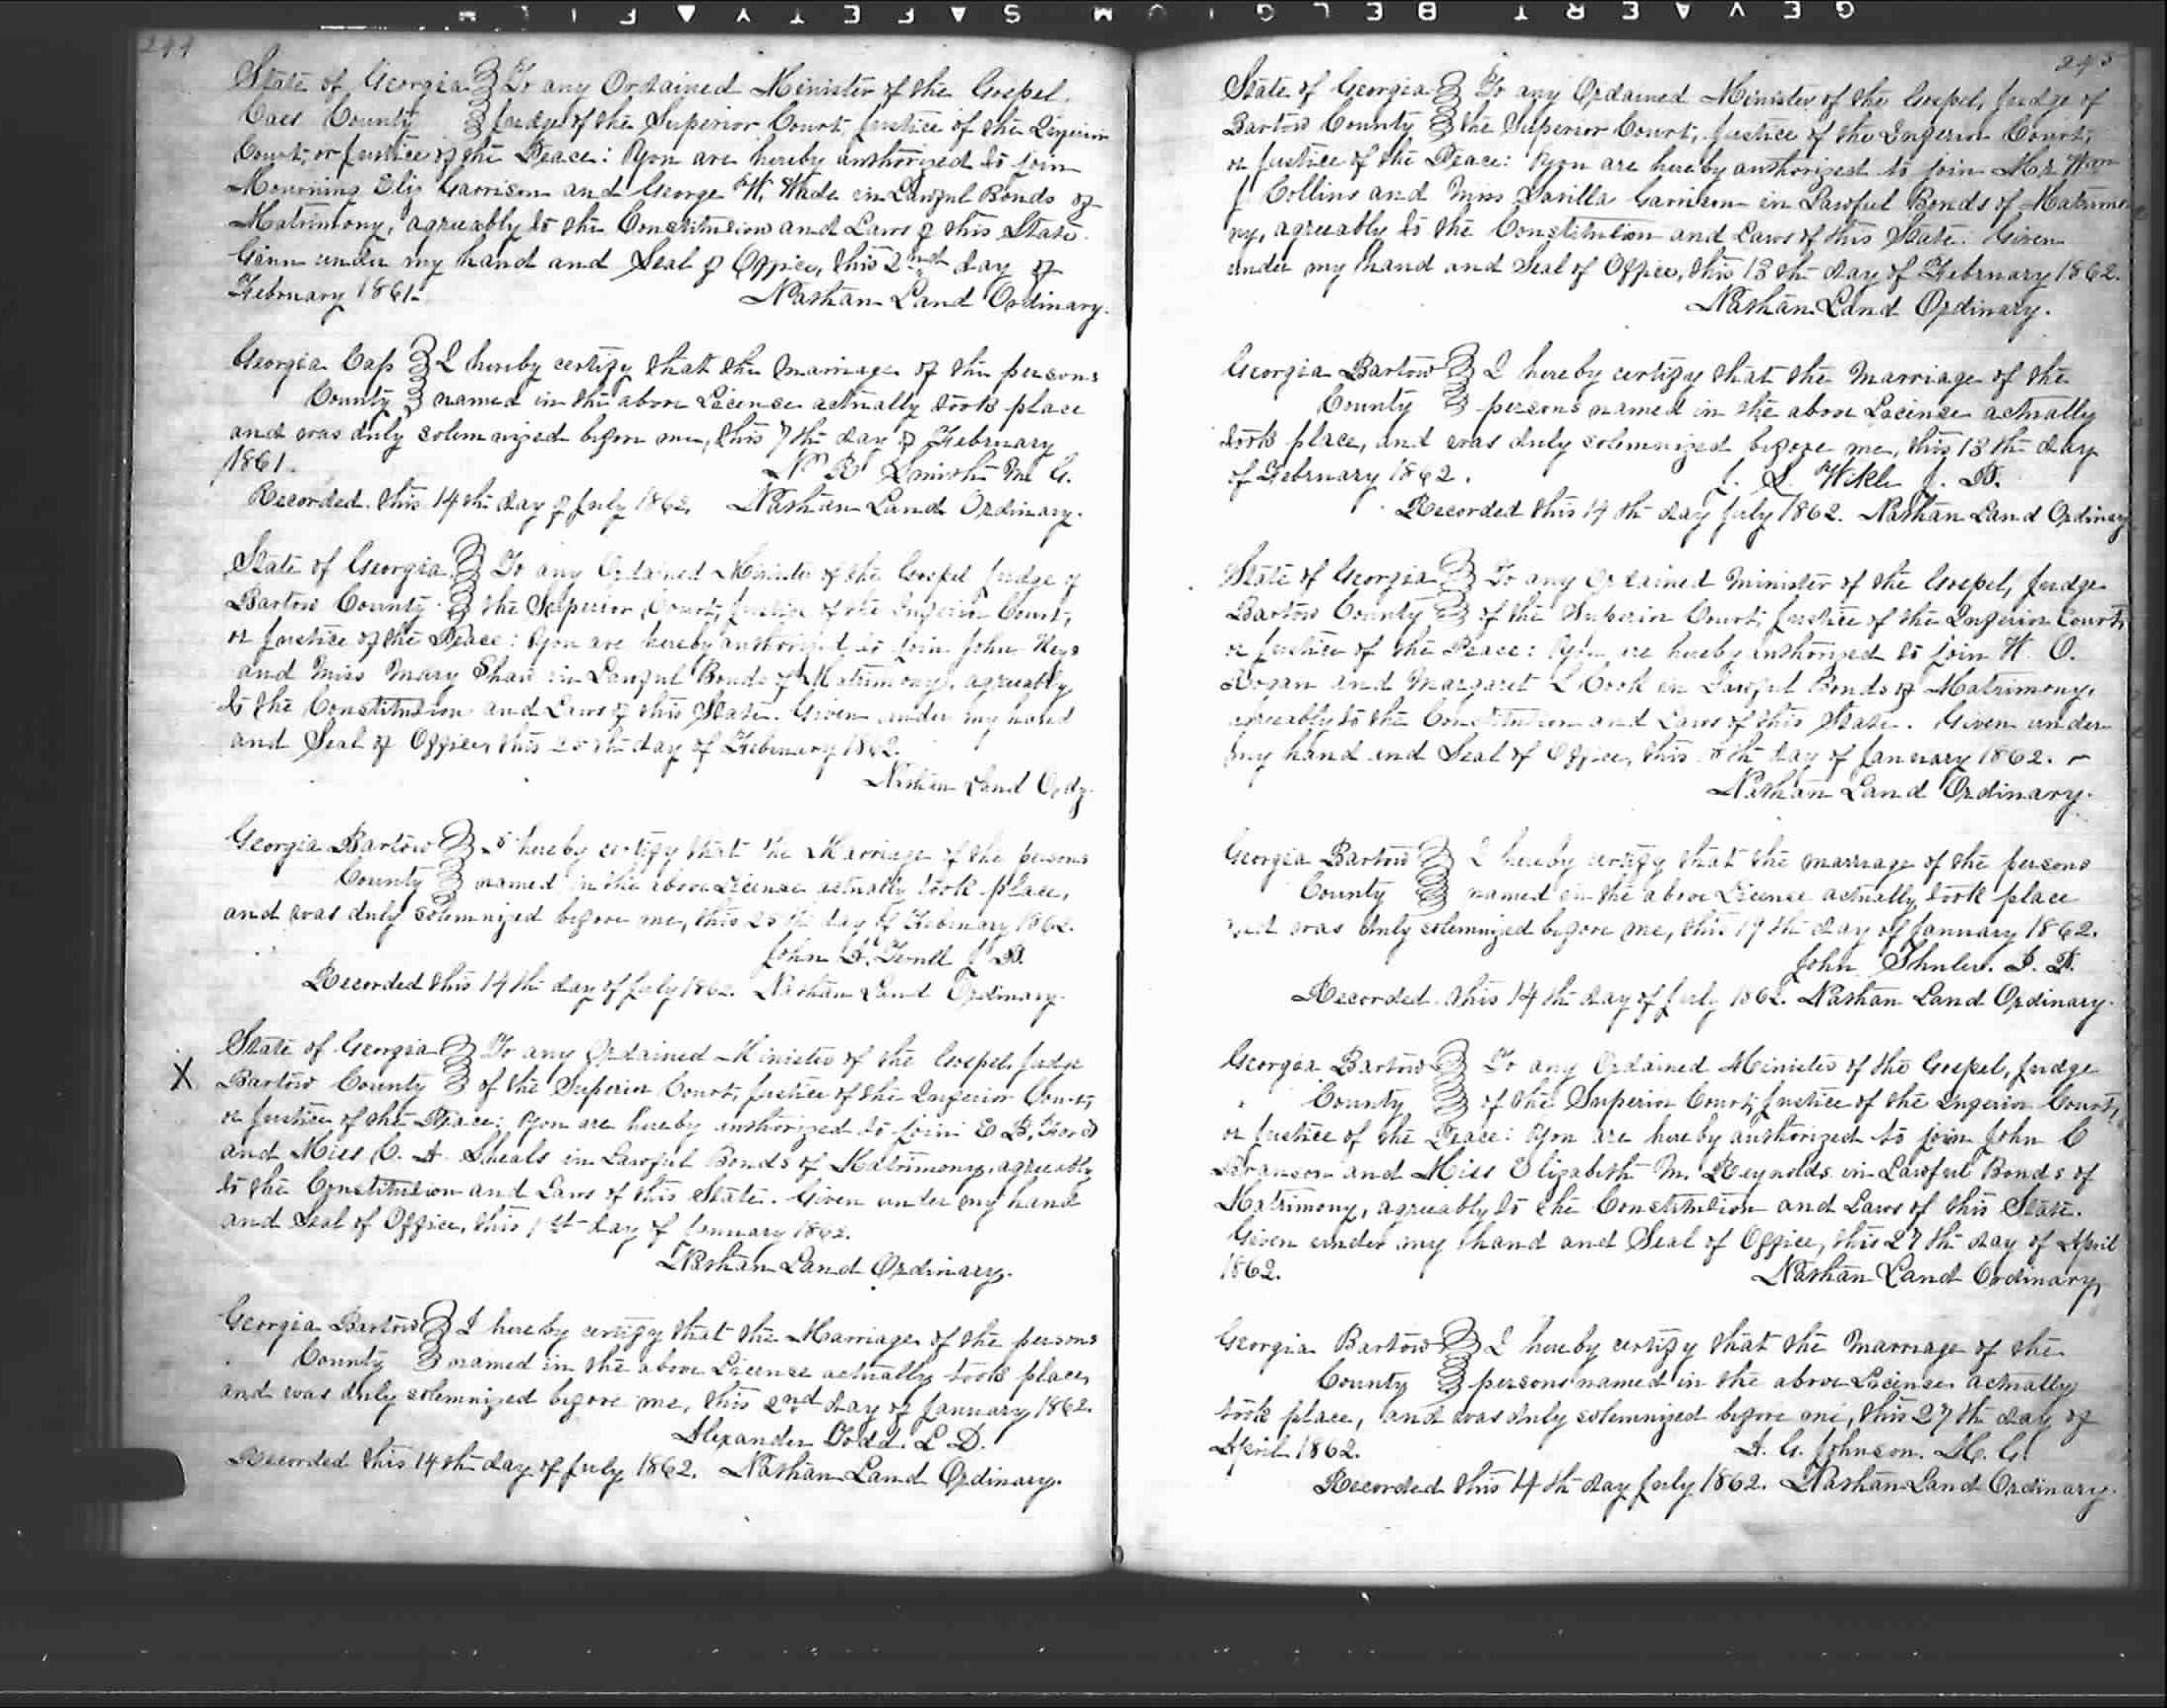 GEVAERT BELGIUM SAFETY FILM
244
State of Georgia To any Ordained Minister of the Gospel
Cass County Judge of the Superior Court, Justice of the Inferior
Court, or Justice of the Peace: You are hereby authorized to join
Mourning Eliz Garrison and George W. Wade in Lawful Bonds of
Matrimony, agreeably to the Constitution and Laws of this State.
Given under my hand and Seal of Office, this 2nd day of
February 1861. Nathan Land Ordinary.
Georgia Cass I hereby certify that the marriage of the persons
County named in the above License actually took place
and was duly solemnized before me, this 7th day of February
1861. Smith M. G.
Recorded this 14th day of July 1862. Nathan Land Ordinary.
State of Georgia To any Ordained Minister of the Gospel Judge of
Bartow County the Superior Court, Justice of the Inferior Court,
or Justice of the Peace: You are hereby authorized to join John Keys
and Miss Mary Shaw in Lawful Bonds of Matrimony, agreeably
to the Constitution and Laws of this State. Given under my hand
and Seal of Office, this 25th day of February 1862.
Nathan Land Ordy.
Georgia Bartow I hereby certify that the Marriage of the persons
County named in the above License actually took place,
and was duly solemnized before me, this 25th day of February 1862.
John F. J. P.
Recorded this 14th day of July 1862. Nathan Land Ordinary.
X
State of Georgia To any Ordained Minister of the Gospel, Judge
Bartow County of the Superior Court, Justice of the Inferior Court,
or Justice of the Peace: You are hereby authorized to join E B. Ford
and Miss C. A. Sheals in Lawful Bonds of Matrimony, agreeably
to the Constitution and Laws of this State. Given under my hand
and Seal of Office, this 1st day of January 1862.
Nathan Land Ordinary.
Georgia Bartow I hereby certify that the Marriage of the persons
County named in the above License actually took place,
and was duly solemnized before me, this 2nd day of January 1862.
Alexander Todd. L D.
Recorded this 14th day of July 1862. Nathan Land Ordinary.
245
State of Georgia To any Ordained Minister of the Gospel, Judge of
Bartow County the Superior Court, Justice of the Inferior Court,
or Justice of the Peace: You are hereby authorized to join Mr. Wm
J Collins and Miss Savilla Garrison in Lawful Bonds of Matrimo
ny, agreeably to the Constitution and Laws of this State. Given
under my hand and Seal of Office, this 13th day of February 1862.
Nathan Land Ordinary.
Georgia Bartow I hereby certify that the Marriage of the
County persons named in the above License actually
took place, and was duly solemnized before me, this 13th day
of February 1862. J. L. Wikle J. P.
Recorded this 14th day July 1862. Nathan Land Ordinary
State of Georgia To any Ordained Minister of the Gospel, Judge
Bartow County of the Superior Court, Justice of the Inferior Court,
or Justice of the Peace: You are hereby authorized to join W. O.
Bogan and Margaret L Cook in Lawful Bonds of Matrimony,
agreeably to the Constitution and Laws of this State. Given under
my hand and Seal of Office, this 8th day of January 1862.
Nathan Land Ordinary.
Georgia Bartow I hereby certify that the marriage of the persons
County named in the above License actually took place
and was duly solemnized before me, this 19th day of January 1862.
John Shuler. J. P.
Recorded this 14th day of July 1862. Nathan Land Ordinary.
Georgia Bartow To any Ordained Minister of the Gospel, Judge
County of the Superior Court, Justice of the Inferior Court,
or Justice of the Peace: You are hereby authorized to join John C
Branson and Miss Elizabeth M. Reynolds in Lawful Bonds of
Matrimony, agreeably to the Constitution and Laws of this State.
Given under my hand and Seal of Office, this 27th day of April
1862. Nathan Land Ordinary
Georgia Bartow I hereby certify that the Marriage of the
County persons named in the above License actually
took place, and was duly solemnized before me, this 27th day of
April 1862. A. G. Johnson. M. G.
Recorded this 14th day July 1862. Nathan Land Ordinary.